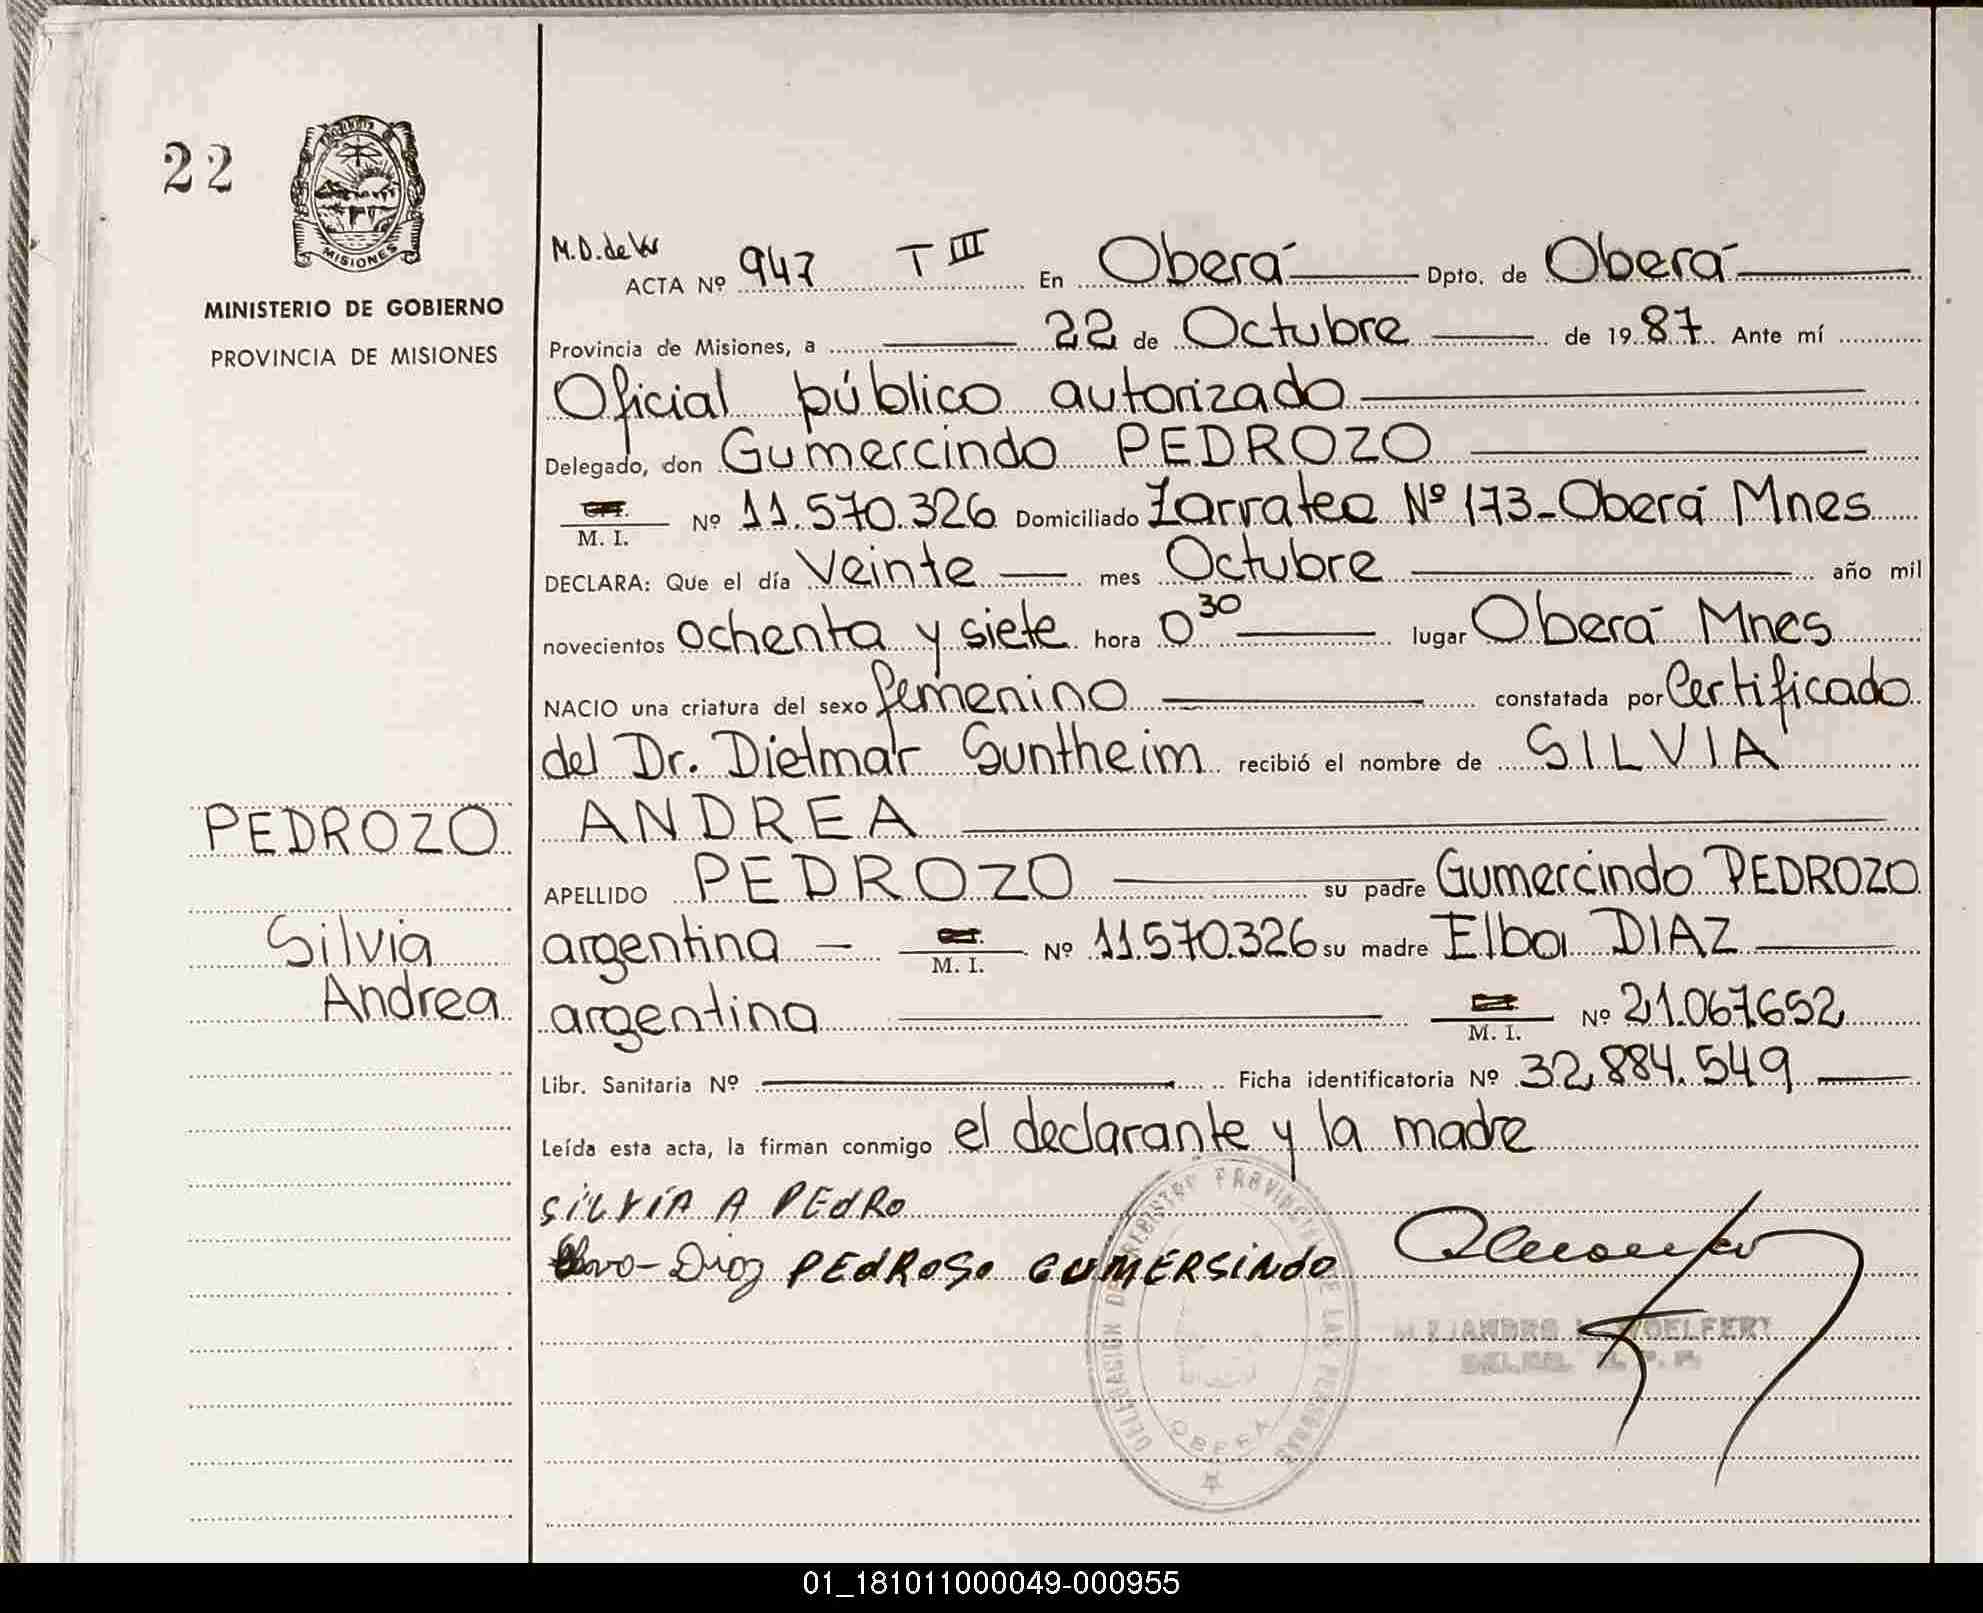 22
MISIONES
MINISTERIO DE GOBIERNO
PROVINCIA DE MISIONES
M.D. de
ACTA Nº 947 T III En Oberá Dpto. de Oberá
Provincia de Misiones, a 22 de Octubre de 1987. Ante mí
Oficial público autorizado
Delegado, don Gumercindo PEDROZO
M. I. Nº 11.570.326 Domiciliado Zarratea Nº 173-Oberá Mnes
DECLARA: Que el día Veinte mes Octubre año mil
novecientos ochenta y siete hora 0 30 lugar Oberá Mnes
NACIO una criatura del sexo femenino constatada por Certificado
del Dr. Dietmar Suntheim recibió el nombre de SILVIA
ANDREA
PEDROZO
APELLIDO PEDROZO su padre Gumercindo PEDROZO
Silvia
Andrea
argentina M. I. Nº 11.570.326 su madre Elba DIAZ
argentina M. I. Nº 21.067.652
Libr. Sanitaria Nº Ficha identificatoria Nº 32.884.549
Leída esta acta, la firman conmigo el declarante y la madre
SiLViA A PEdRo
Diaz PEdRoSo GUMERSiNdo
DELEGACION DE REGISTRO PROVINCIAL DE LAS PERSONAS
OBERA
01_181011000049-000955